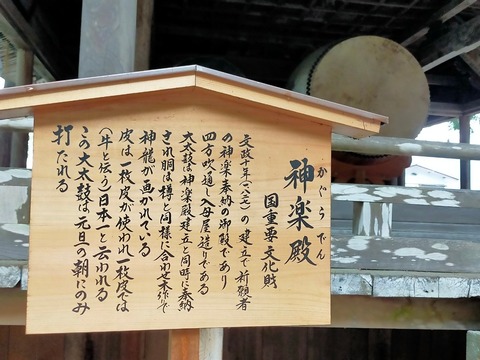 神楽殿
かぐらでん
国重要文化財
文政十年(一八二七)の建立で祈願者
の神楽奉納の御殿であり
四方吹き通し入母屋造りである
大太鼓は神楽殿建立と同時に奉納
され胴は樽と同様に合わせ木作で
神龍が画かれている
皮は一枚皮が使われ一枚皮では
(牛と云う)日本一と云われる
この大太鼓は元旦の朝にのみ
打たれる